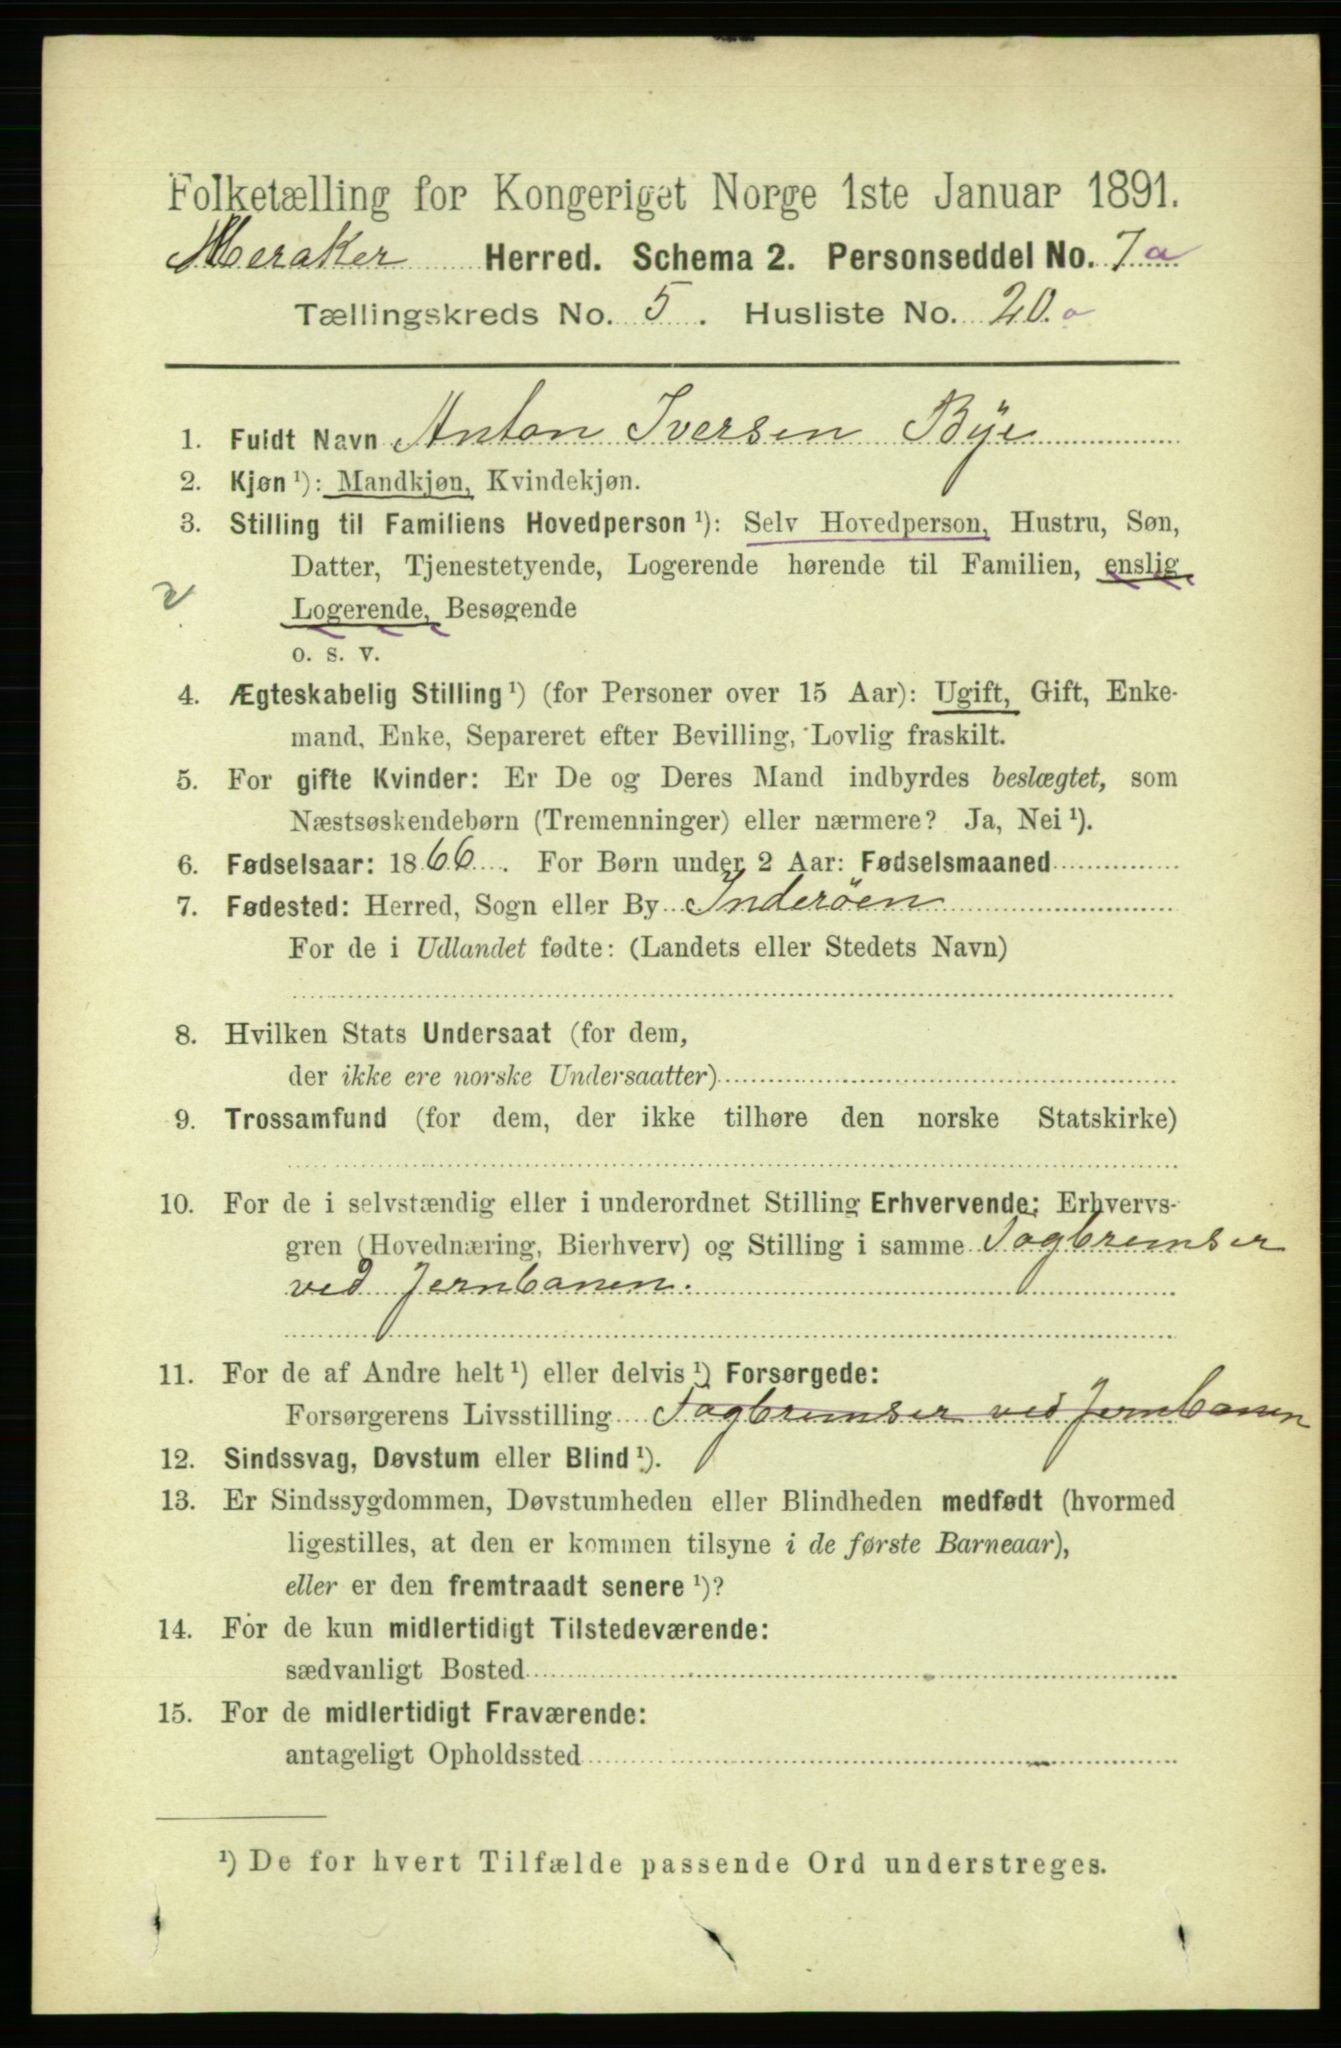 Folketælling for Kongeriget Norge 1ste Januar 1891.
Meraker Herred. Schema 2. Personseddel No. 7 a
Tællingskreds No. 5. Husliste No. 20. a
1. Fuldt Navn Anton Iversen Bÿe
2. Kjøn ¹): Mandkjøn, Kvindekjøn.
3. Stilling til Familiens Hovedperson ¹): Selv Hovedperson, Hustru, Søn,
Datter, Tjenestetyende, Logerende hørende til Familien, enslig
Logerende, Besøgende
o. s. v.
4. Ægteskabelig Stilling ¹) (for Personer over 15 Aar): Ugift, Gift, Enke-
mand, Enke, Separeret efter Bevilling, Lovlig fraskilt.
5. For gifte Kvinder: Er De og Deres Mand indbyrdes beslægtet, som
Næstsøskendebørn (Tremenninger) eller nærmere? Ja, Nei ¹).
6. Fødselsaar: 1866. For Børn under 2 Aar: Fødselsmaaned
7. Fødested: Herred, Sogn eller By Inderöen
For de i Udlandet fødte: (Landets eller Stedets Navn)
8. Hvilken Stats Undersaat (for dem,
der ikke ere norske Undersaatter)
9. Trossamfund (for dem, der ikke tilhøre den norske Statskirke)
10. For de i selvstændig eller i underordnet Stilling Erhvervende: Erhvervs-
gren (Hovednæring, Bierhverv) og Stilling i samme Togbremser
ved Jernbanen.
11. For de af Andre helt ¹) eller delvis ¹) Forsørgede:
Forsørgerens Livsstilling Togbremser ved Jernbanen
12. Sindssvag, Døvstum eller Blind ¹).
13. Er Sindssygdommen, Døvstumheden eller Blindheden medfødt (hvormed
ligestilles, at den er kommen tilsyne i de første Barneaar),
eller er den fremtraadt senere ¹)?
14. For de kun midlertidigt Tilstedeværende:
sædvanligt Bosted
15. For de midlertidigt Fraværende:
antageligt Opholdssted
¹) De for hvert Tilfælde passende Ord understreges.